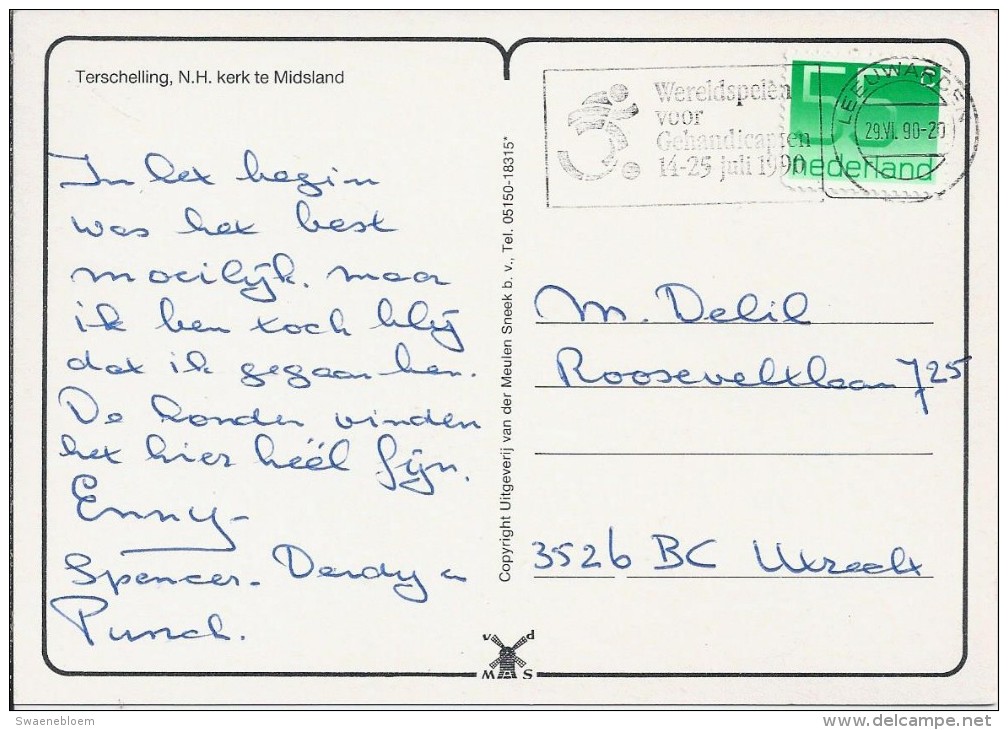 Terschelling, N.H. kerk te Midsland
In het begin
was het best
moeilijk. maar
ik ben toch blij
dat ik gegaan ben.
De honden vinden
het hier héél fijn.
Enny-
Spencer- Dandy en
Punch.
Copyright Uitgeverij van der Meulen Sneek b. v., Tel. 05150-18315*
v d P
S W
Wereldspelen
voor
Gehandicapten
14-25 juli 1990
55 c
nederland
LEEUWARDEN
29.VI. 90-20
M. Delil
Rooseveltlaan 725
3526 BC Utrecht
Swaenebloem
delcampe.net